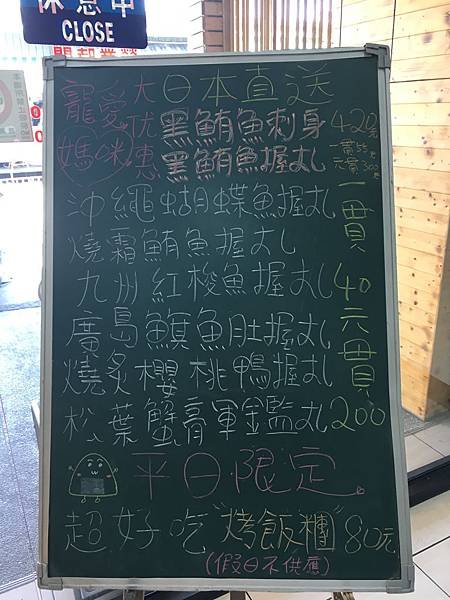 休息中
CLOSE
寵愛大日本直送
媽咪优黑鮪魚刺身420元
惠黑鮪魚握丸一貫
沖繩蝴蝶魚握丸一貫
燒霜鮪魚握丸
九州紅梭魚握丸40元
廣島鱼旗魚肚握丸貫
燒炙櫻桃鴨握丸
松葉蟹膏軍鑑丸200
平日限定
超好吃"烤飯糰"80元
(假日不供應)